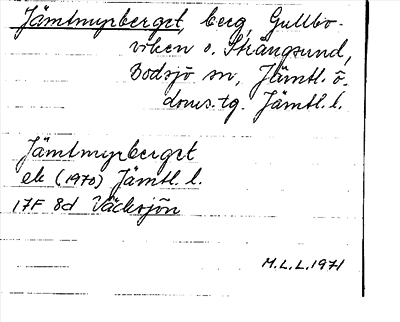 Jämtmyrberget, berg, Gullbo-
viken o. Strångsund,
Bodsjö sn, Jämtl. ö.
doms.tg. Jämtl. l.
Jämtmyrberget
ek (1970) Jämtl. l.
17F 8d Väcksjön
M.L.L. 1971